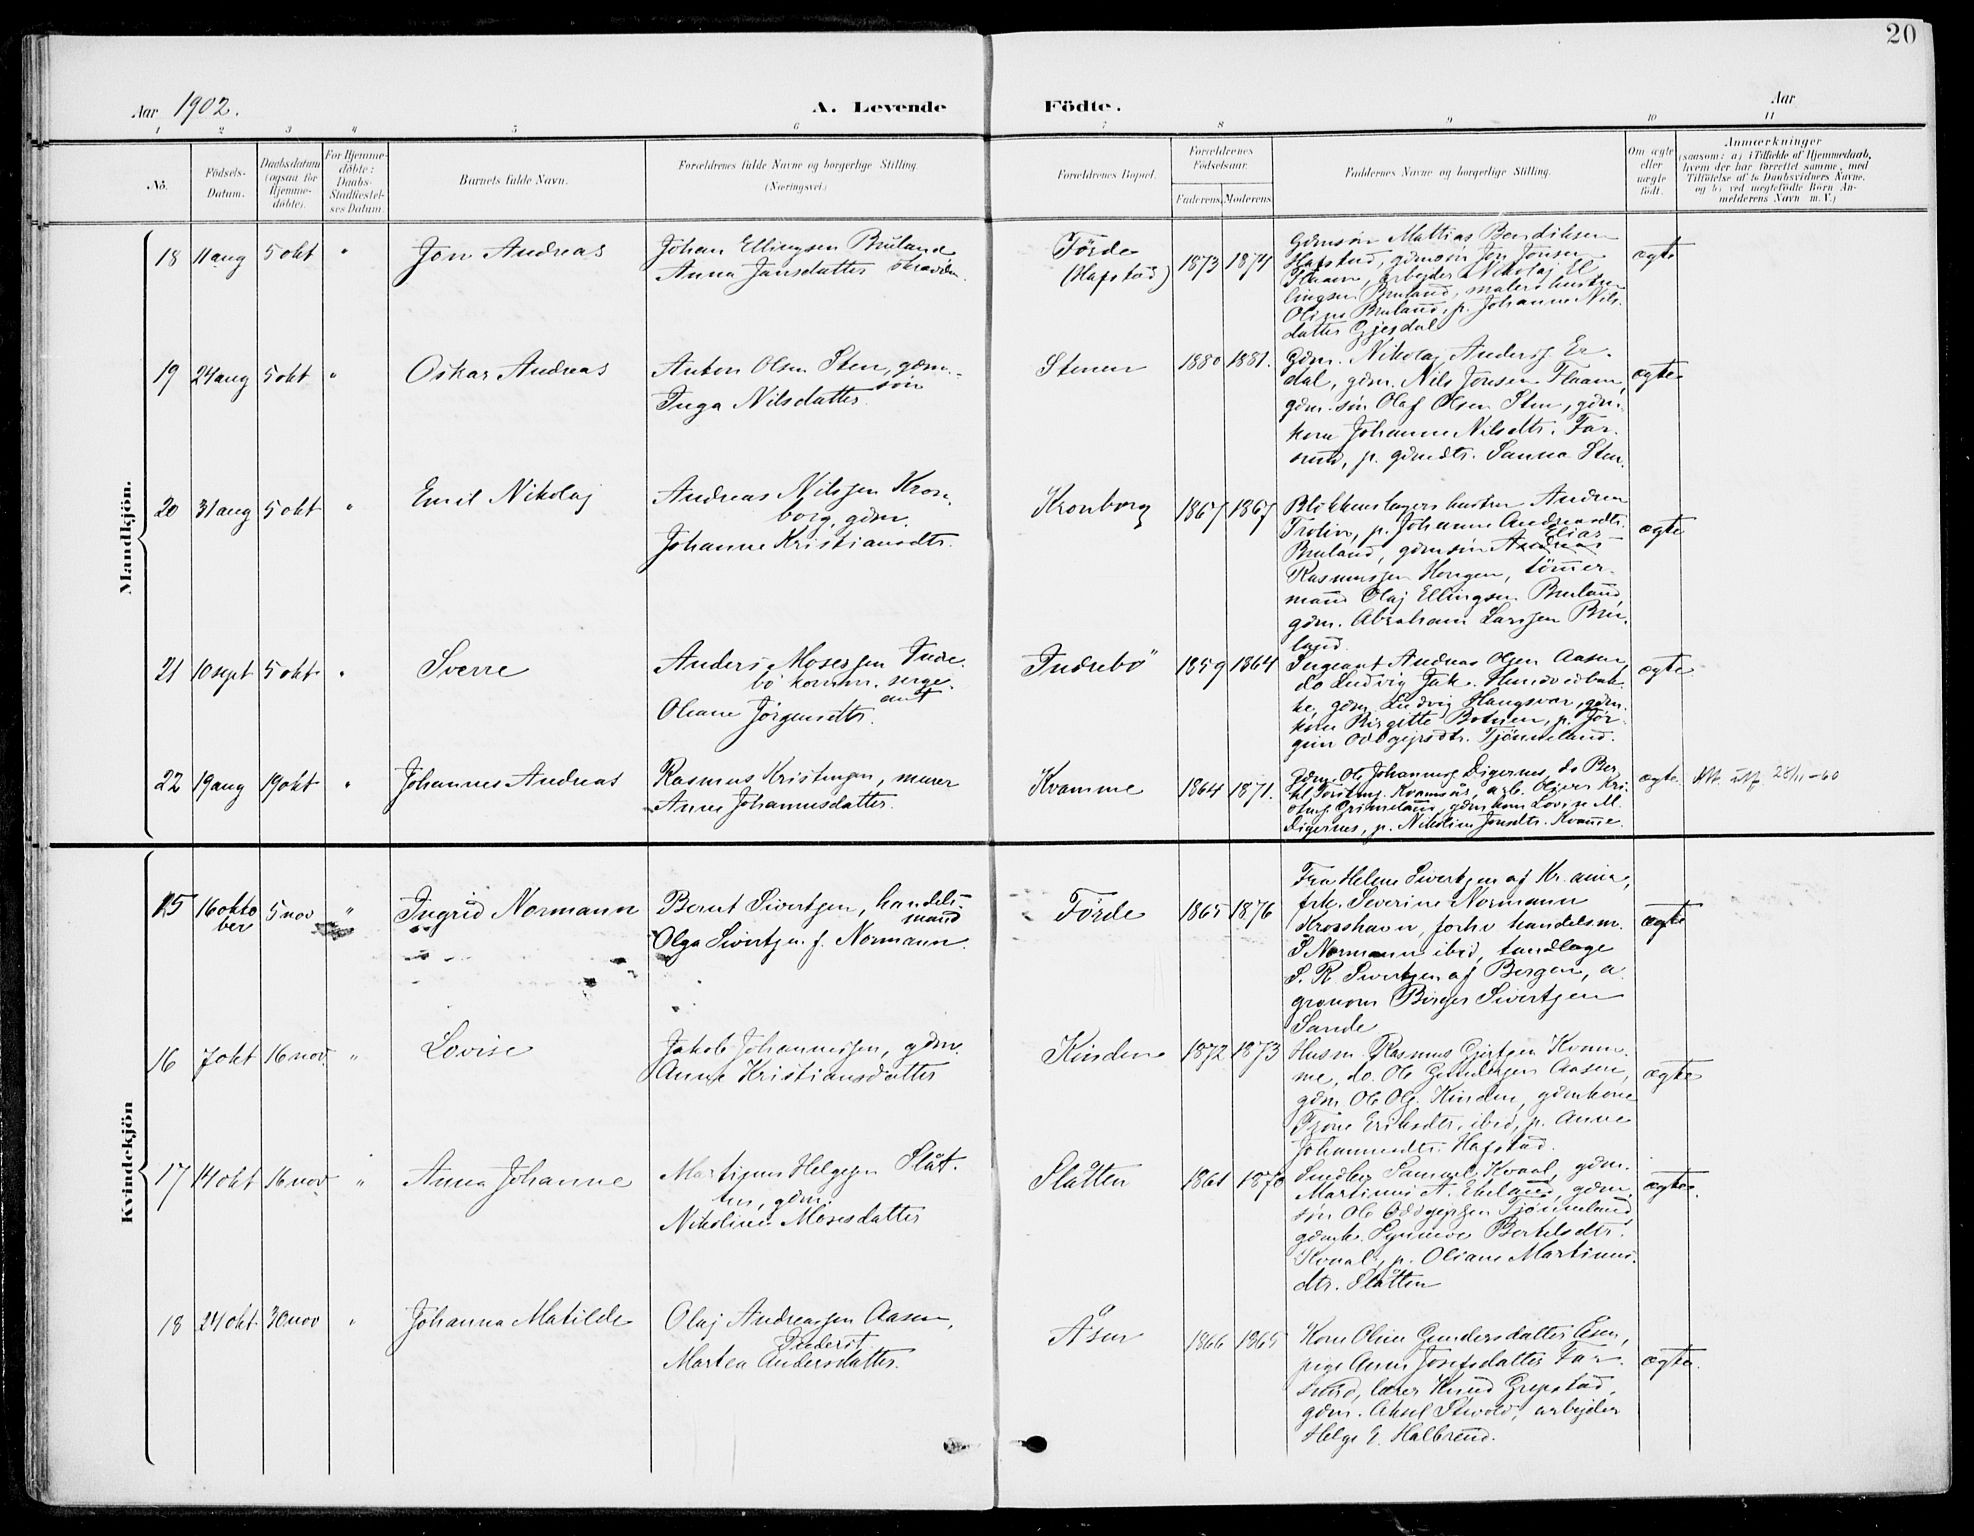 20
Aar 1902. A. Levende Födte. Aar
1 2 3 4 5 6 7 8 9 10 11
No. Födsels-Datum. Daabsdatum (ogsaa for Hjemme-döbte). For Hjemme-döbte: Daabs-Stadfæstel-ses Datum. Barnets fulde Navn. Forældrenes fulde Navne og borgerlige Stilling. (Næringsvei.) Forældrenes Bopæl. Forældrenes Födselsaar. Faderens. Moderens. Faddernes Navne og borgerlige Stilling. Om ægte eller uægte födt. Anmærkninger
(saasom: a) i Tilfælde af Hjemmedaab,
hvem der har forrettet samme, med
Tilföielse af to Daabsvidners Navne,
og b) ved uægtefödte Börn An-
melderens Navn m. V.)
Mandkjön.
18 11 aug 5 okt " Jon Andreas
Johan Ellingsen Bruland
Anna Jansdatter skrædder.
Förde
(Hafstad)
1873 1874
Gdmsön Mattias Bendiksen
Hafstad, gdmsön Jon Jonsen
Flaam, arbejder Nikolaj El
lingsen Bruland, malers hustru
Oline Bruland, p. Johanne Nils
datter Gjesdal
ægte
19 24 aug 5 okt " Oskar Andreas
Anton Olsen Sten, gdm.
sön
Inga Nilsdatter
Stenen
1880 1881.
Gdm. Nikolaj Anders. Er-
dal, gdm. Nils Jonsen Flaam,
gdm. sön Olaf Olsen Sten, gdm.
kone Johanne Nilsdtr. Far-
sund, p. gdmdtr. Sanna Sten.
ægte
20 31 aug 5 okt " Emil Nikolaj
Andreas Nilssen Kron-
borg, gdm.
Johanne Kristiansdtr.
Kronborg
1867 1867
Blikkenslagers hustru Andrea
p. Johanne Andreasdtr.
Elias
Bruland, gdmsön Andreas
Rasmussen Hongen, tömmer-
mand Olaj Ellingsen Bruland,
gdm. Abraham Larssen Bru-
land.
ægte
21 10 sept 5 okt " Sverre
Anders Mosessen Indre-
bö komm. serge-
ant
Oliane Jörgensdtr.
Indrebö
1859 1864
Sergeant Andreas Olsen Aasen,
do Ludvig Jak. Hundvedbak-
ke, gdm. Ludvig Haugsvar, gdm.
kone Birgitte Botnen, p. Jör-
gine Oddgejrsdtr. Tjönneland.
ægte
22 19 aug 19 okt " Johannes Andreas
Rasmus Kristensen, murer
Anne Johannesdatter.
Kvamme
1864 1871.
Gdm. Ole Johanness. Digernes, do Ber
tel Torstens. Kvamsås, arb. Oliver Kri
stofers. Grimeland, gdmkone Lovise M.
Digernes, p. Nikoline Jonsdtr. Kvamme.
ægte. Att. utf. 28/11-60
Kvindekjön
15 16 okto
ber
5 nov " Ingrid Normann
Bernt Sivertsen, handels-
mand
Olga Sivertsen f. Normann
Förde
1865 1876
Fru Helene Sivertsen af Kr.ania,
frk. Severine Normann
Krosshavn, forhv handelsm.
S Normann ibid, tandlæge
S. R Sivertsen af Bergen, a-
gronom Birger Sivertsen
Sande
ægte
16 7 okt 16 nov. " Lovise
Jakob Johannessen, gdm.
Anna Kristiansdatter
Kinden
1872 1873
Husm. Rasmus Gjertsen Kvam-
me, do. Ole Gundersen Aasen,
gdm Ole Ols. Kinden, gdmkone
Tröne Eriksdtr. ibid, p. Anne
Johannesdtr. Hafstad.
ægte
17 14 okt 16 nov " Anna Johanne
Martinus Helgesen Slåt-
ten, gdm.
Nikoline Mosesdatter
Slåtten
1861 1870
Snedker Samuel Kvaal, gdm.
Martinus A. Ekeland, gdm.
sön Ole Oddgejrsen Tjönneland
gdmk. Synneve Bertelsdtr.
Kvaal, p. Oliane Martinus-
dtr. Slåtten
ægte.
18 24 okt. 30 nov " Johanna Matilde
Olaj Andreassen Aasen,
Inderst
Martea Andersdatter.
Åsen
1866 1865
Kone Oline Gundersdatter Åsen,
pige Anne Josefsdatter Far-
sund, lærer Knud Grepstad,
gdm. Aksel arbejder
Helge E. Halbrend.
ægte.